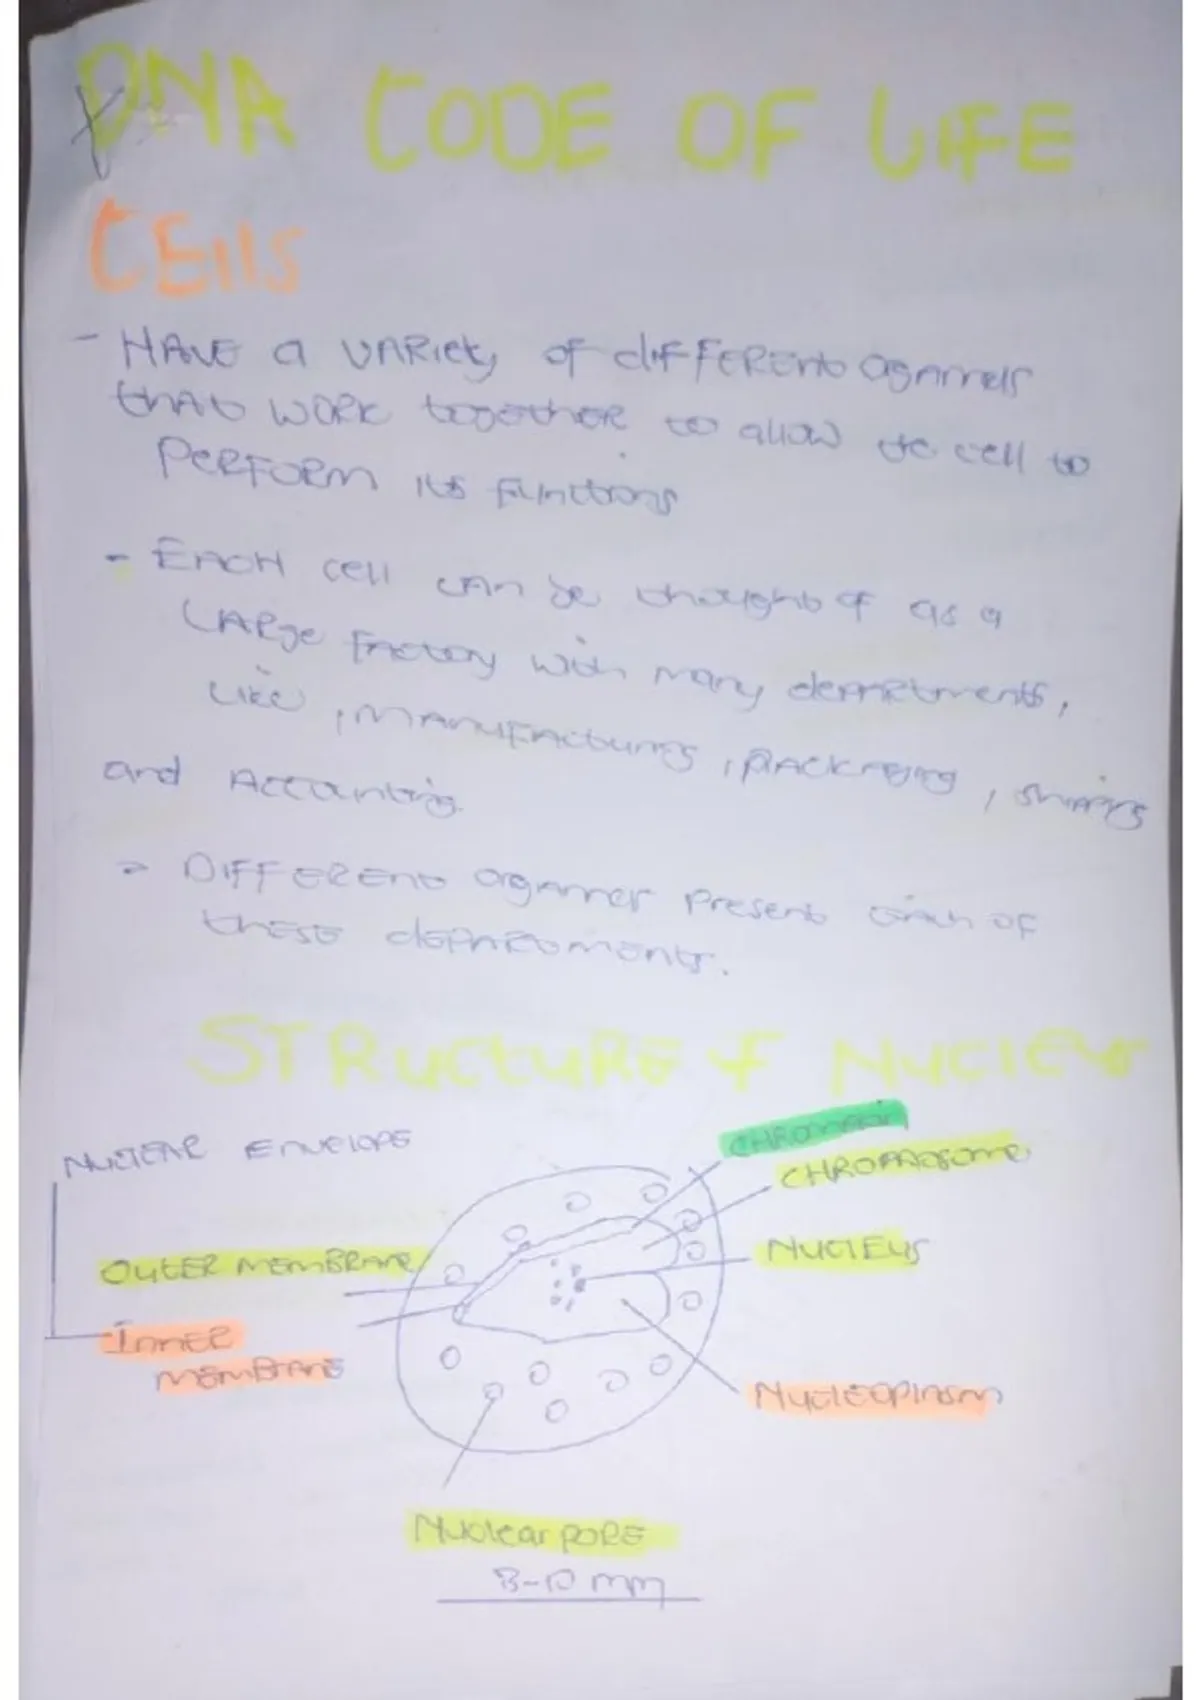 DNA CODE OF LIFE
CEllS
- HAVE a VARIety of diFFERENt Ogannels
that WORK togetHER to allow the cell to
PERFORM its functions
- EACH cell can be thought of as a
LARge Factory with many departments,
Like , MANUFActuring , PACKAging , shipping
and Accounting.
- DIFFERENt organnels Present Each of
these dEPARtments.
STRuctuRE of NucleUs
NUCLEAR ENVElOPE
CHROMAtin
CHROMOSOME
OUtER MEMBRANE
NUClEUS
INNER
MEMBRANE
NUCLEOPlasm
Nuclear PORE
8-10 mm